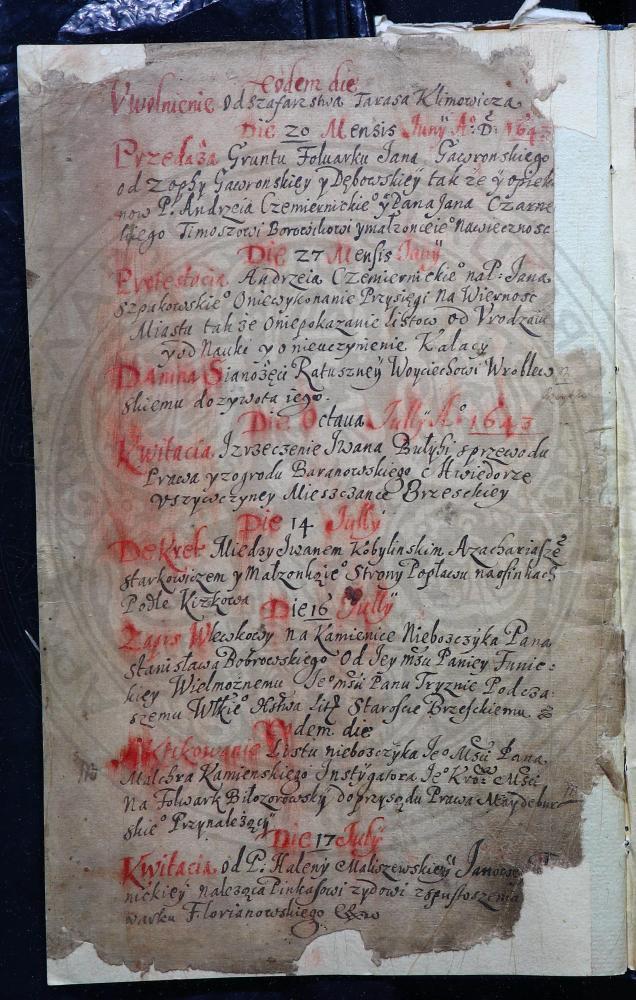 Eodem die
Uwolnienie od szafarstwa Tarasa Klimowicza
Die 20 Mensis Juny A°: D: 1643
Przedaża Gruntu Foluarku Jana Gawronskiego
od Zophy Gawronskiey y Dębowskiey tak że y opieku
now P. Andrzeia Czemiernickie° y Pana Jana Czarne
ckiego Timoszowi Borowikowi y małzonce ie° na wieczność
Die 27 Mensis Juny
Protestacia Andrzeia Czemiernickie° na P: Jana
Szpakowskie° o niewykonanie Przysięgi na Wiernosc
Miastu tak że o niepokazanie listow od Vrodzaiu
y od Nauki y o nieuczynienie Kałacy
Danina Sianożęci Ratuszney Woyciechowi Wroblew
skiemu do zywota iego.
Die Octaua July A° 1643
Kwitacia Izrzeczenie Iwana Bułybi sprzewodu
Prawa y zogrodu Baranowskiego c Hwiedorze
Mieszczance Brzeskiey
Die 14 July
Dekret Między Iwanem Kobylinskim A zachariaszē
Starkowiczem y Małzonką ie° Strony Popławu na osinkach
Podle Kizkowa
Die 16 July
Zapis Wlewkowy na Kamienice Nieboszczyka Pana
Stanisława Bobrowskiego od Jey mśu Paniey Funic:
kiey Wielmożnemu Je° mśu Panu Tryznie Podcza:
szemu Wlkie° Xstwa Lit Staroscie Brzesckiemu
Eodem die
Listu nieboszczyka Je° Mśći Pana
Malchra Kamienskiego Instygatora Je° Kro: Mśći
Na Folwark Biłozorowsky do przysądu Prawa Maydebur
skie° Przynależący
Die 17 July
Kwitacia od P. Haleny Maliszewskiey Janowe
nickiey należąca Pinkasowi zydowi z spustoszenia
warku Florianowskiego